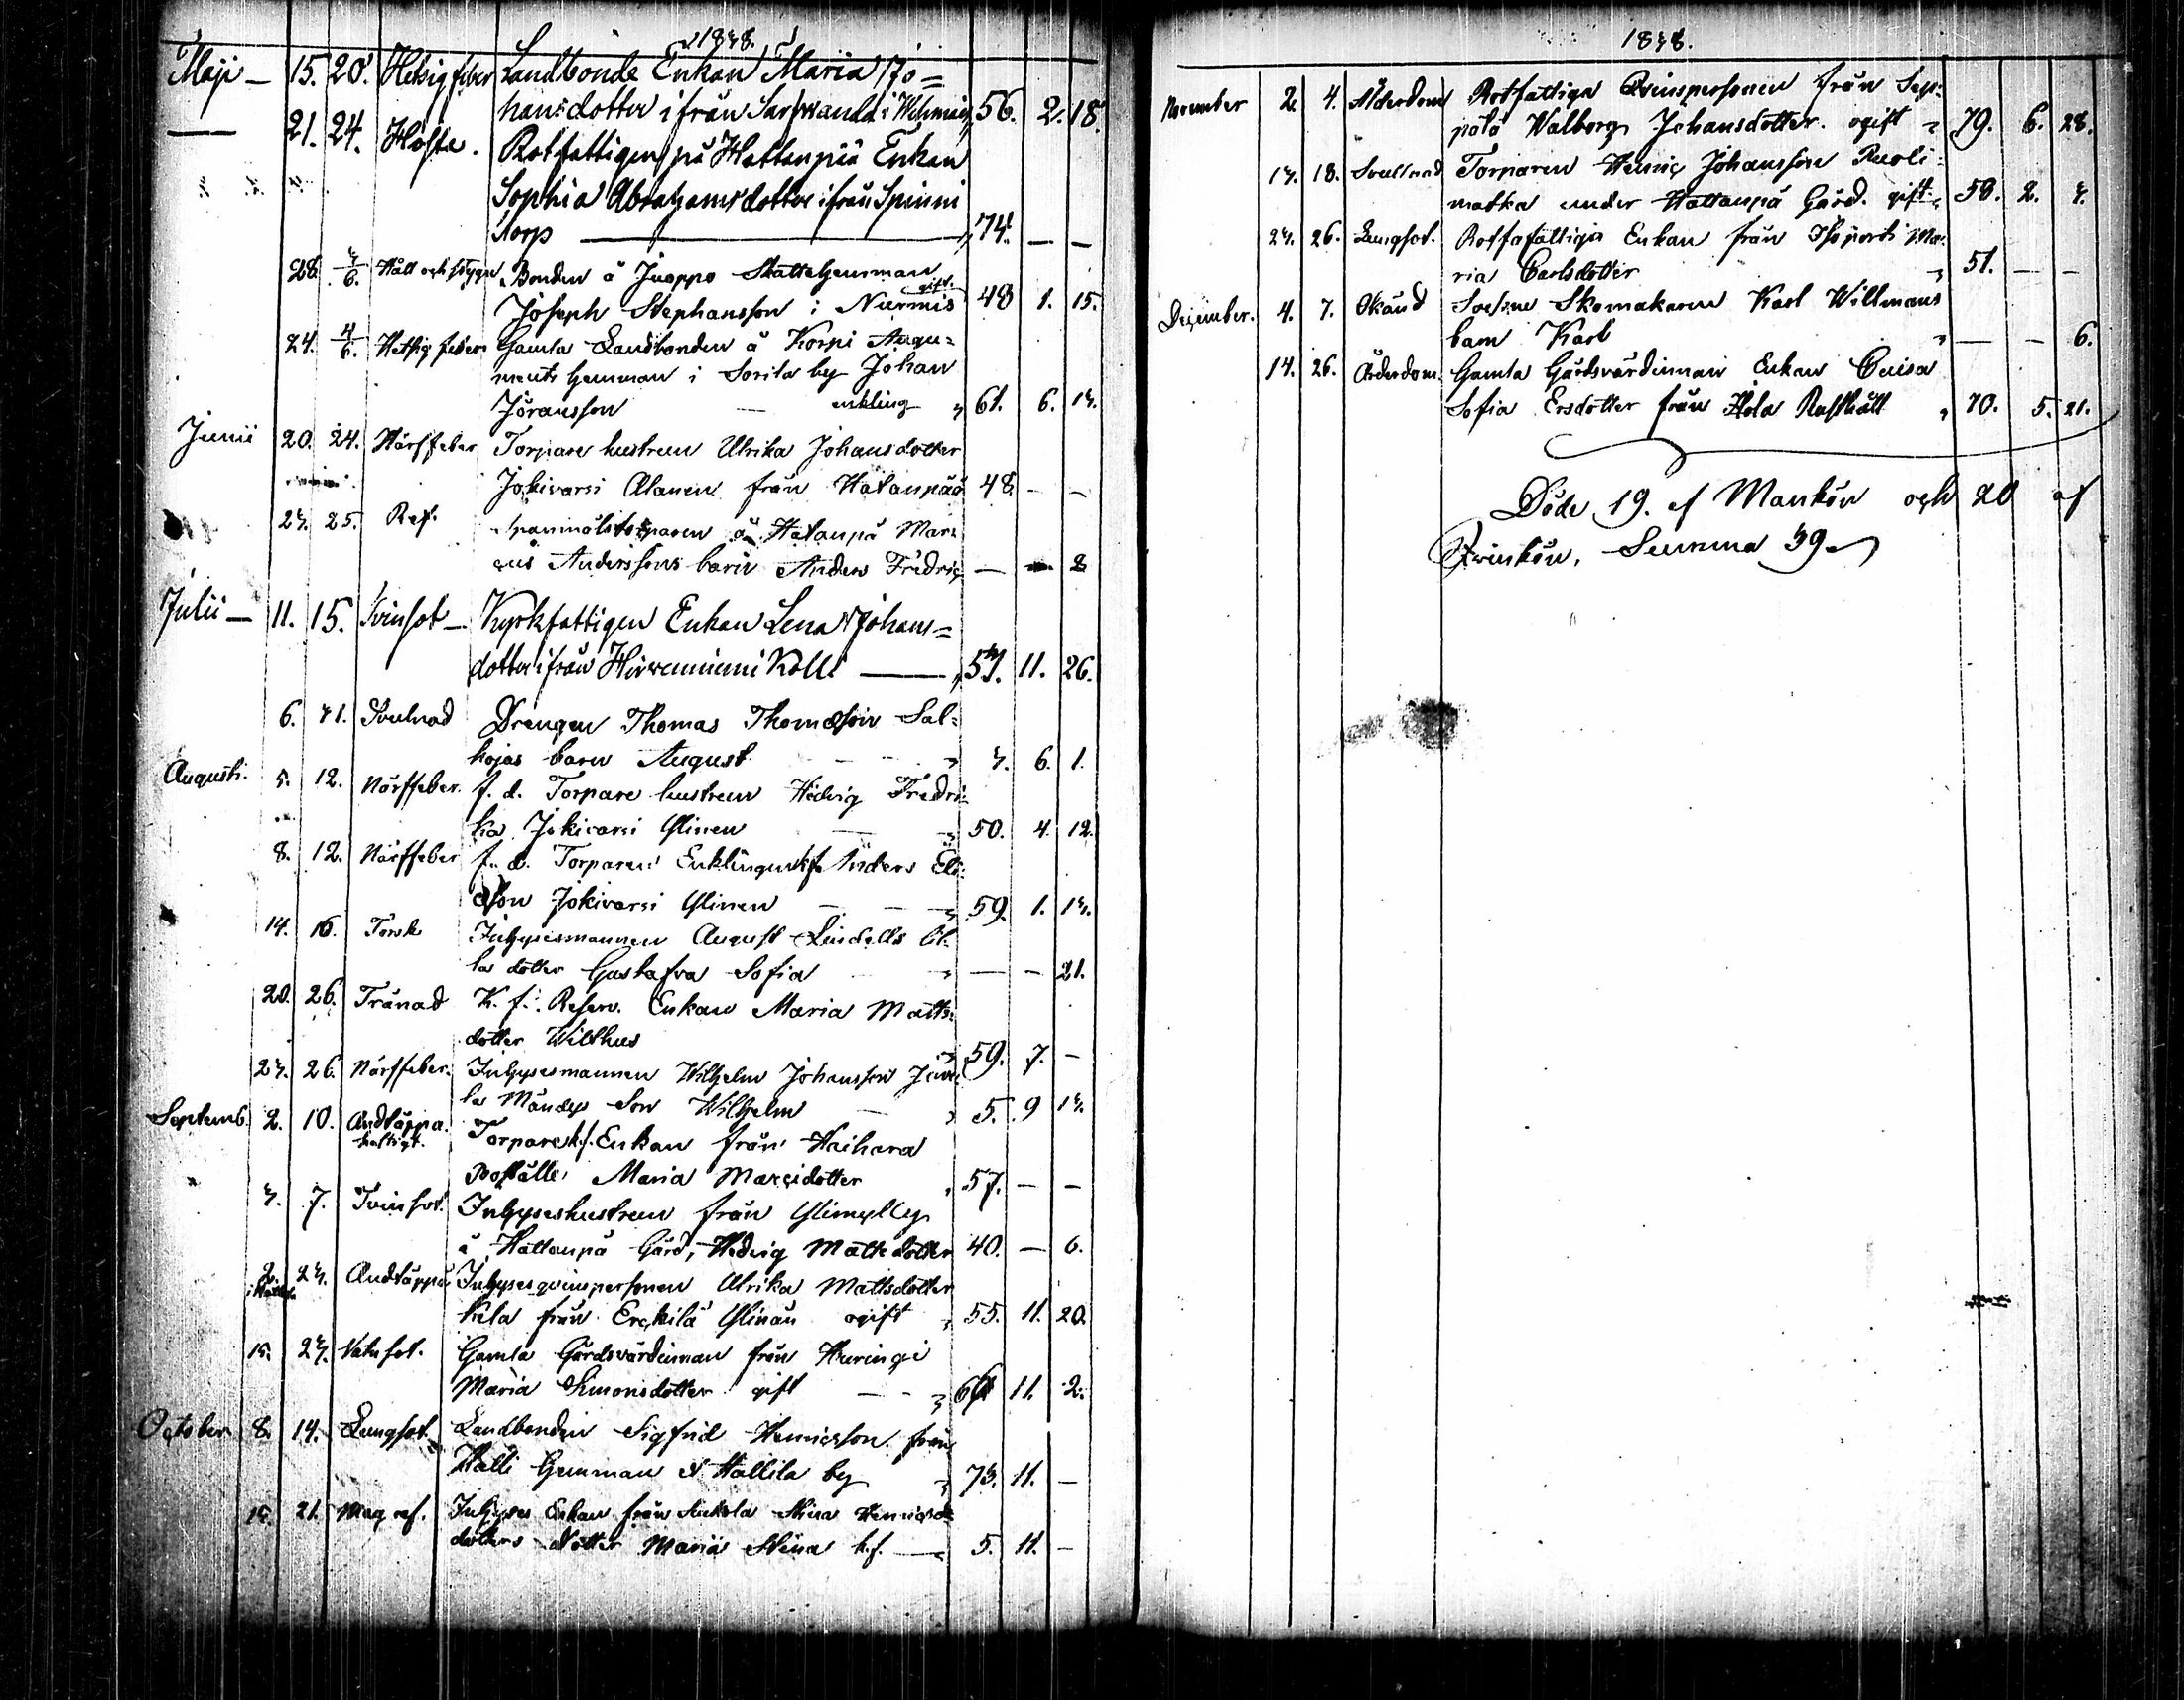 1848.
Maji — 15. 20. Hetsig feber Landbonde Enkan Maria Jo=
hansdotter ifrån i 56. 2. 18.
— 21. 24. Håste. Rotfattigen på Hattanpää Enkan
Sophia Abrahamsdotter ifrån Spinni
torp — 74. — —
28. 3/6. Håll och stygn Bonden å Juoppo Skattehemman
Joseph Stephansson i Niemis gift. 48 1. 15.
24. 4/6. Hetsig feber Gamla Landbonden å Korpi Augu=
ments hemman i Sorila by Johan
Jöransson — enkling 61. 6. 13.
Junii 20. 24. Närffeber Torpare hustrun Ulrika Johansdotter
Jokivarsi Alanen från Hatanpää 48 — —
23. 25. Ref. Spanmålstorparen å Hatanpä Mar=
cus Anderssons barn Anders Fredric — — 2
Julii — 11. 15. Tvinsot — Kyrkfattigen Enkan Lena Johans=
dotter ifrån Hirwenniemi Kolli — 57. 11. 26.
6. 31. Svulnad Drengen Thomas Thomasson Sal=
kojas barn August 3. 6. 1.
Augusti. 5. 12. Närffeber. f. d. Torpare hustrun Hedvig Fredri=
ka Jokivarsi Ylinen 50. 4. 12.
8. 12. Närffeber f. d. Torparen Enklingen Anders Eli=
asson Jokivarsi Ylinen — 59. 1. 13.
14. 16. Torsk Inhysesmannen August Lindells lil=
la dotter Gustafva Sofia — — 21.
20. 26. Trånad K. f. Reserv. Enkan Maria Matts=
dotter Wilthus 59. 7. —
23. 26. Närffeber. Inhysesmannen Wilhelm Johansson
la son Wilhelm 5. 9 13.
Septemb. 2. 10. Andtäppa. Torpare k.f. Enkan från Haihara
häftigt.
Boställe Maria Marcidotter 57. — —
3. 7. Tvinsot. Inhyseshustrun från Ylimylly
å Hattanpä Gård, Hedvig Mattsdotter 40. — 6.
2. 23. Andtäppa Inhysesqvinspersonen Ulrika Mattsdotter
från Erckilä Ylinän ogift 55. 11. 20.
15. 23. Vatusot. Gamla Gårdsvärdinnan från
Maria Simonsdotter gift — 11. 2.
October 8. 14. Lungsot. Landbonden Sigfrid Henricsson från
Halli hemman i Hallila by 73. 11. —
15. 21. Mag ref. Inhyses Enkan från Sukola Stina Henrics
dotters dotter Maria Stina k.f. — 5. 11. —
1848.
November 2. 4. Ålderdom Rotfattiga Qvinspersonen från Sep=
pälä Walborg Johansdotter. ogift 79. 6. 28.
13. 18. Svullnad Torparen Henric Johansson Ruoli=
matka under Hattanpä Gård. gift 50. 2. 3.
23. 26. Lungsot. Rotfattiga Enkan från Ma=
ria Carlsdotter 51. — —
December. 4. 7. Okänd Sockne Skomakaren Karl Willmans
barn Karl — — 6.
14. 26. Ålderdom. Gamla Gårdsvärdinnan Enkan Cuisa
Sofia Ersdotter från 70. 5. 21.
Döde 19. af Mankön och 20 af
Qvinkön. Summa 39.